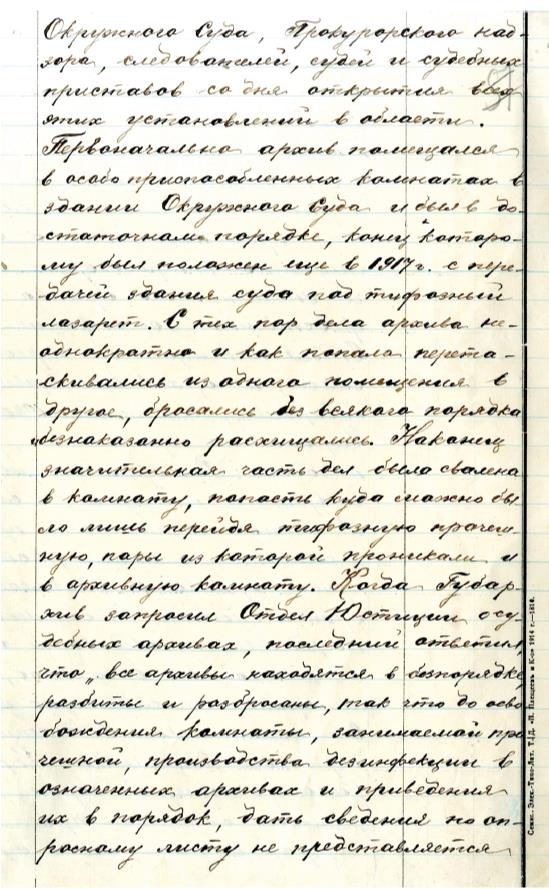 Окружного Суда, Прокурорского над-
зора, следователей, судей и судебных
приставов со дня открытия всех
этих установлений в области.
Первоначально архив помещался
в особо приспособленных комнатах в
здании Окружного Суда и был в до-
статочном порядке, конец которо-
му был положен еще в 1917 г. с пере-
дачей здания суда под тифозный
лазарет. С тех пор дела архива не-
однократно и как попало перета-
скивались из одного помещения в
другое, бросались без всякого порядка
безнаказанно расхищались. Наконец
значительная часть дел была свалена
в комнату, попасть куда можно бы
ло лишь перейдя тифозную прачеш-
ную, пары из которой проникали и
в архивную комнату. Когда Губар-
хив запросил Отдел Юстиции о су-
дебных архивах, последний ответил,
что „все архивы находятся в безпорядке,
разбиты и разбросаны, так что до осво
бождения комнаты, занимаемой пра
чешной, производства дезинфекции в
означенных архивах и приведения
их в порядок, дать сведения по оп-
росному листу не представляется